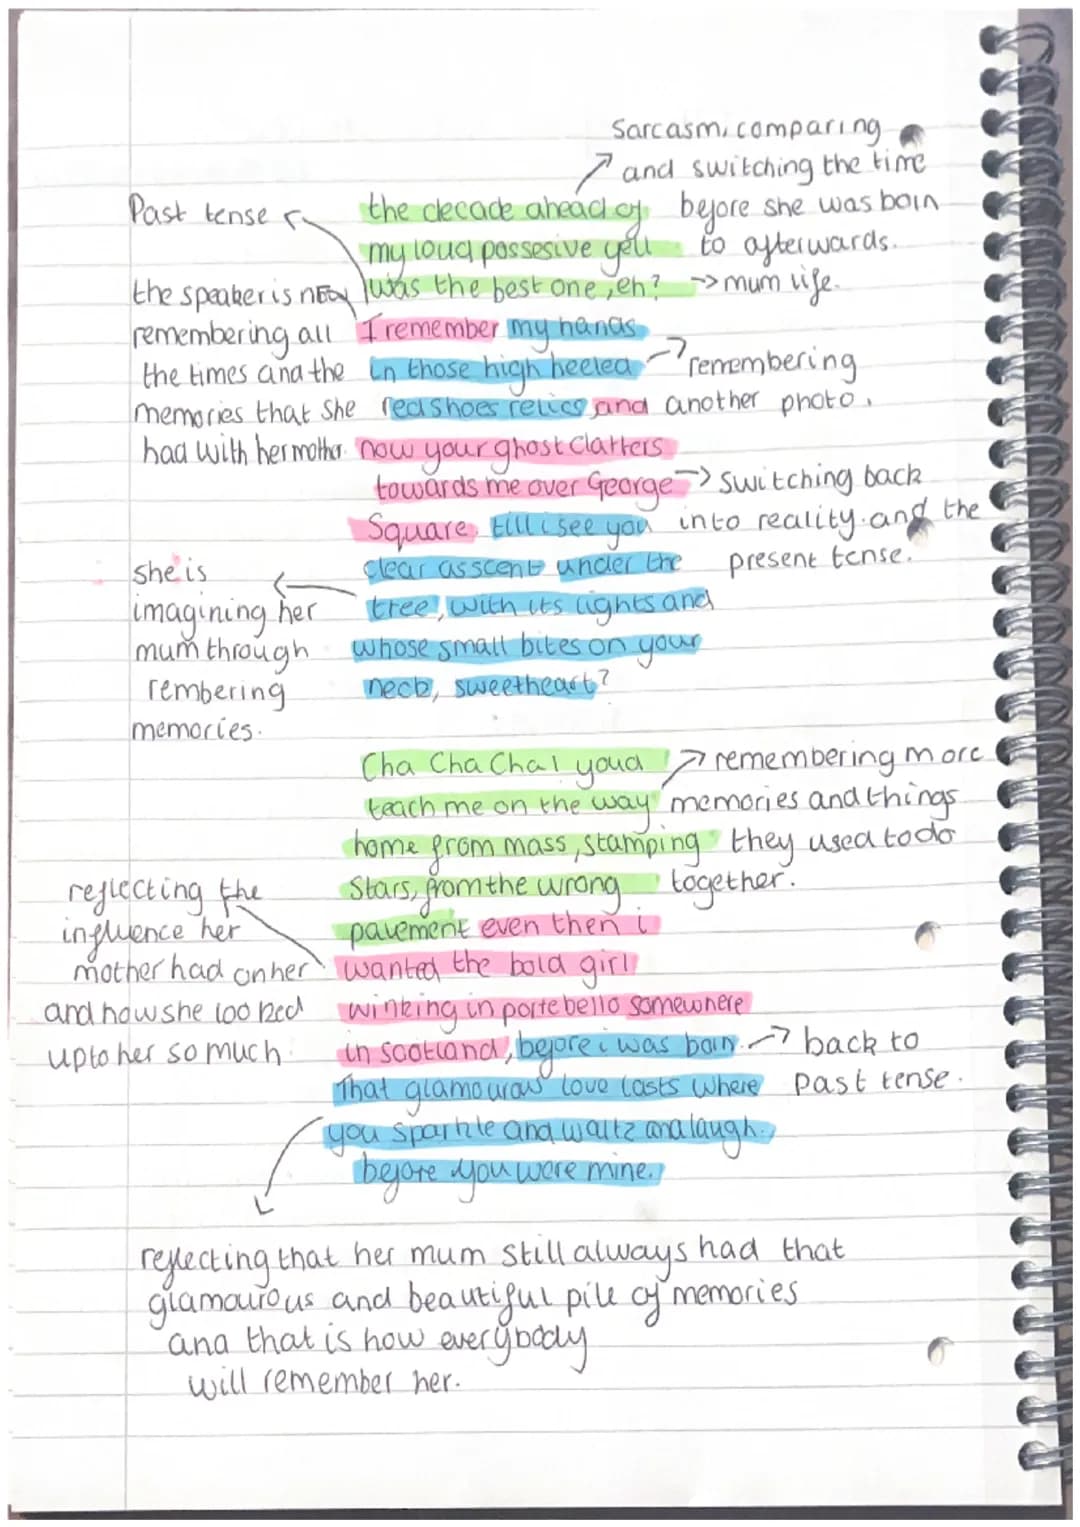 Sarcasm, comparing
and switching the time
before she was born
to afterwards.
-> mum life.
Past tense
the decade ahead of
my loud possesive yell
was the best one, eh?
I remember my hands
in those high heeled
red shoes relics and
now your ghost clatters
towards me over George
Square till i see you
clear as scent under the
tree, with its lights and
whose small bites on your
neck, sweetheart?
the speaker is now
remembering all
the times and the
memories that she
had with her mother.
remembering
another photo.
switching back
into reality. and the
present tense.
she is
imagining her
mum through
rembering
memories.
Cha Cha Cha! youd
teach me on the way
home from mass, stamping
Stars, from the wrong
pavement even then i
wanted the bold girl
winking in portebello somewhere
in scotland, before i was born.
That glamourous love lasts where
you sparkle and waltz and laugh.
before you were mine.
remembering more
memories and things
they used to do
together.
reflecting the
influence her
mother had on her
and how she looked
up to her so much.
back to
past tense.
reflecting that her mum still always had that
glamourous and beautiful pile of memories
and that is how everybody
will remember her.